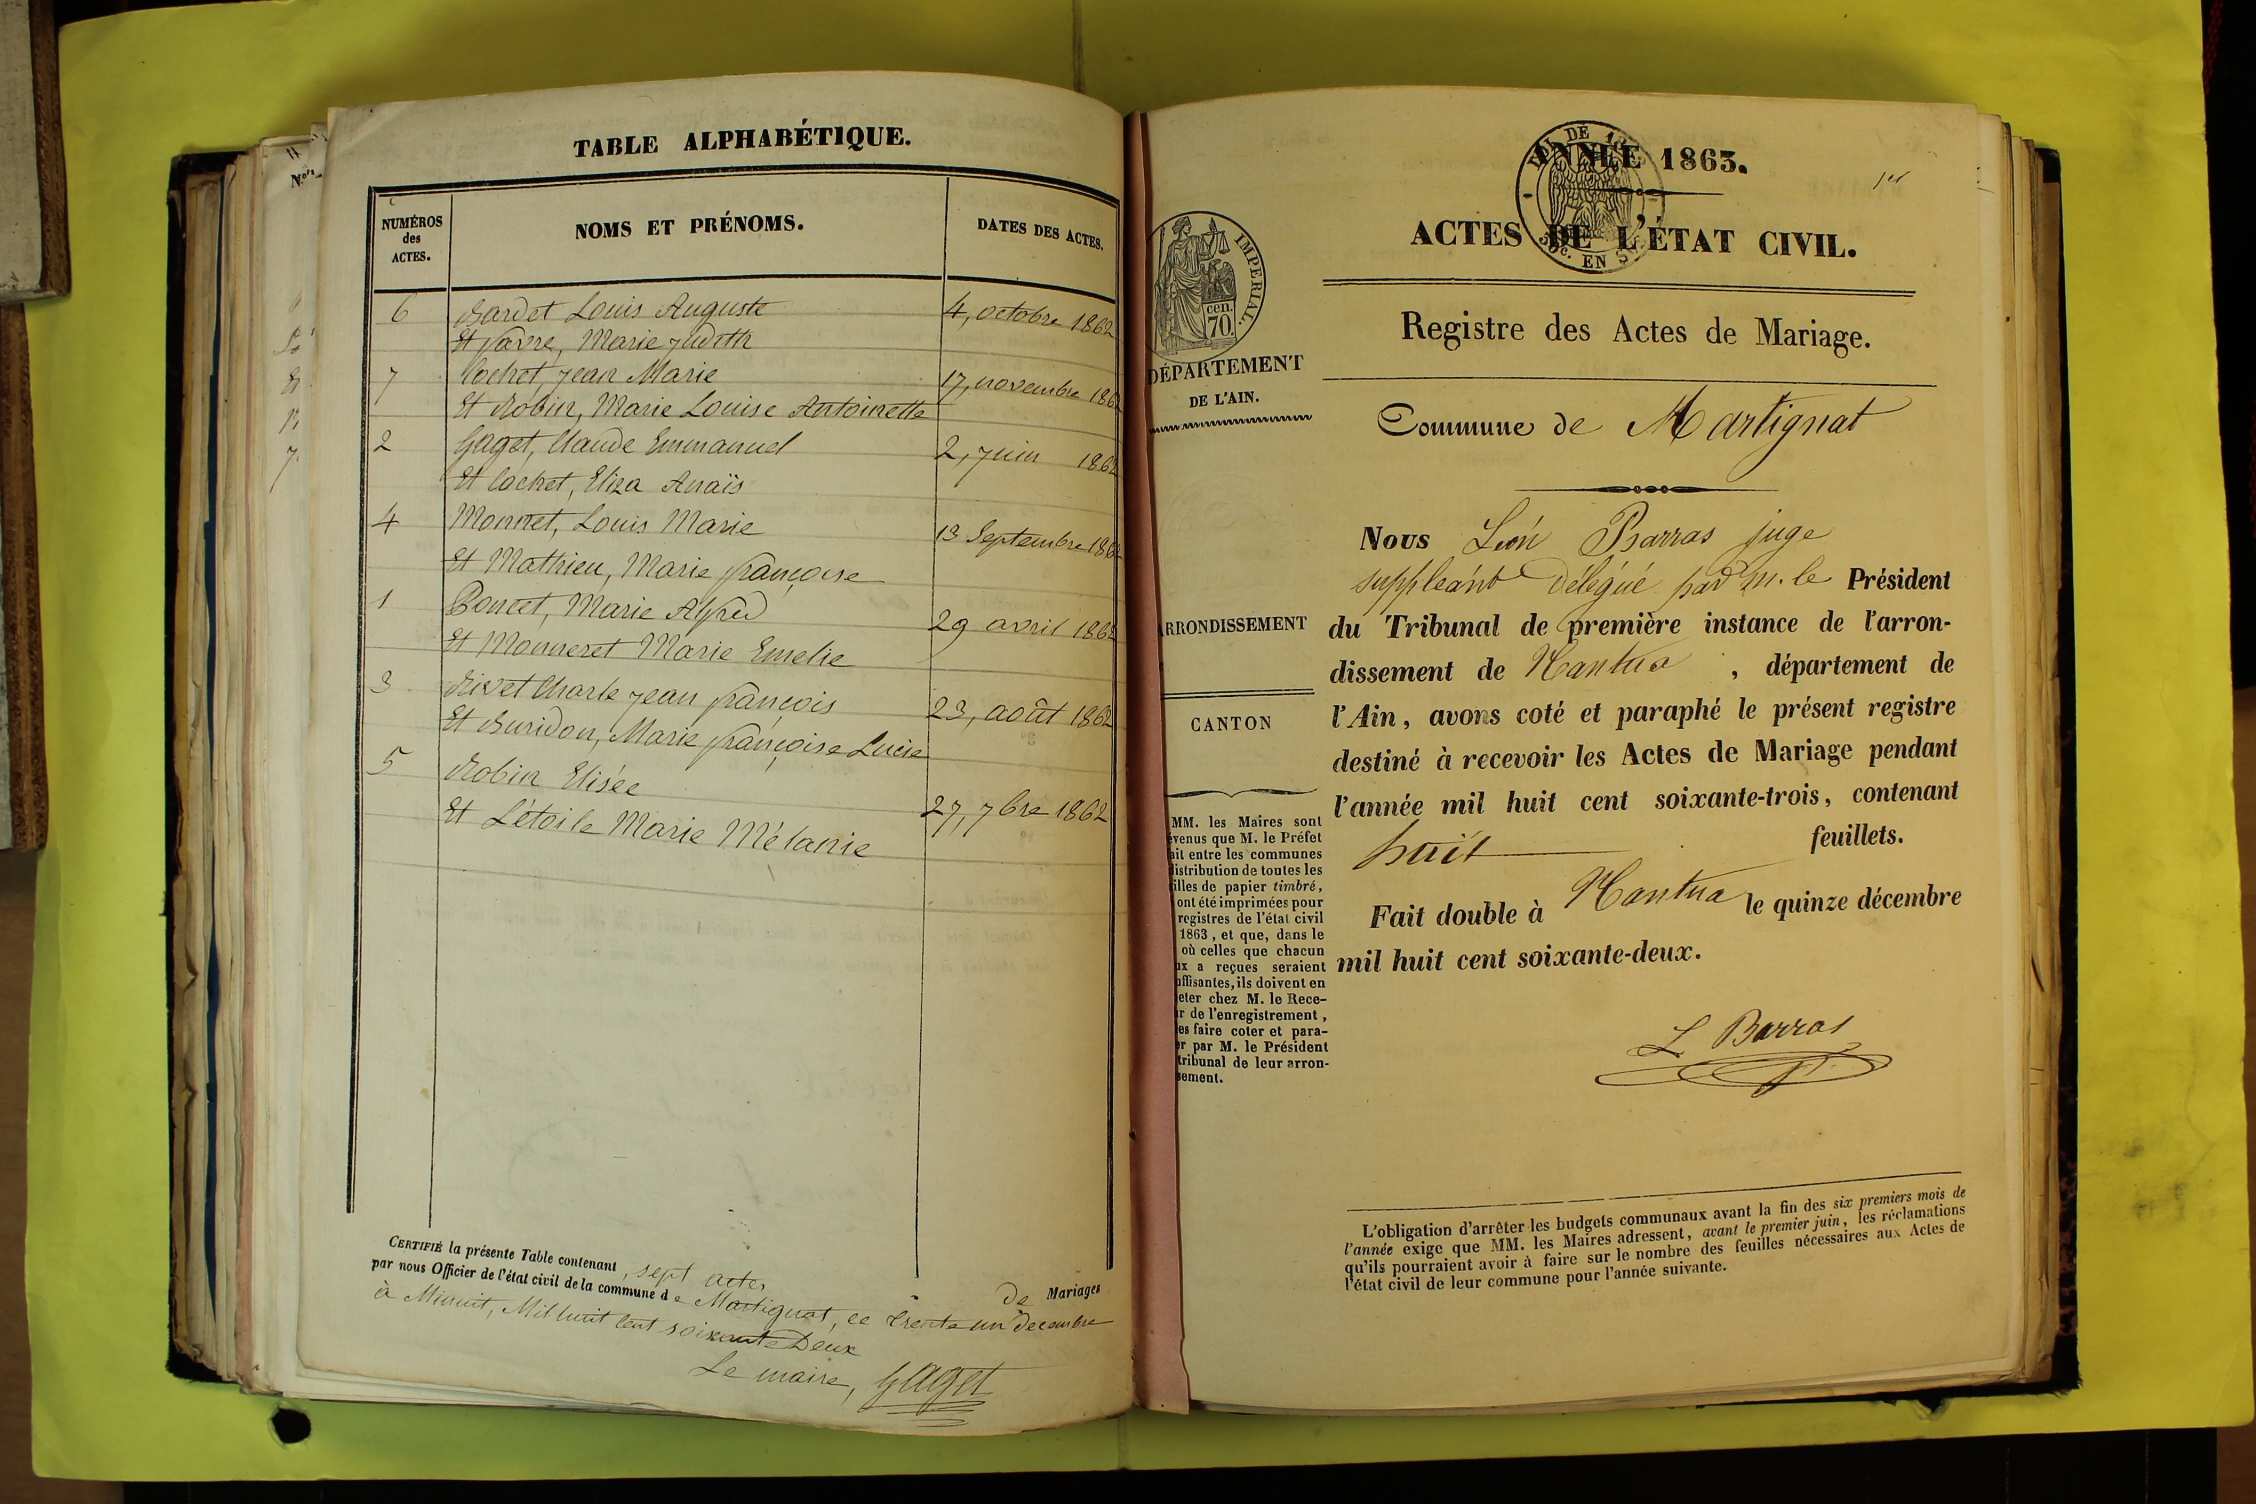 TABLE ALPHABÉTIQUE.
NUMÉROS
des
ACTES.
NOMS ET PRÉNOMS.
DATES DES ACTES.
6 Bardet Louis Auguste 4, octobre 1862
Et favre, Marie Judith
7 Cochet, Jean Marie 17, novembre 186
Et Robin, Marie Louise Antoinette
2 Gaget, Claude Emmanuel 2, Juin 1862
Et Cochet, Eliza Anaïs
4 Monnet, Louis Marie 13 Septembre 186
Et Mathieu, Marie françoise
1 Poncet, Marie Alfred 29 avril 1862
Et Monneret Marie Emelie
3 Rivet Charle Jean françois 23, août 1862
Et Buridon, Marie françoise Lucie
5 Robin Elisée 27, 7bre 1862
Et Létoile Marie Mélanie
CERTIFIÉ la présente Table contenant, sept actes de Mariages
par nous Officier de l'état civil de la commune de Martignat, ce Trente un décembre
à Minuit, Mil huit Cent soixante Deux
Le maire, Gaget
ANNÉE 1863.
1er
ACTES DE L'ÉTAT CIVIL.
IMPERIAL.
cen.
70.
DÉPARTEMENT
DE L'AIN.
Registre des Actes de Mariage.
Commune de Martignat
Nous Léon Barras juge
suppleánt délégué par m. le Président
du Tribunal de première instance de l'arron-
dissement de Nantua, département de
l'Ain, avons coté et paraphé le présent registre
destiné à recevoir les Actes de Mariage pendant
l'année mil huit cent soixante-trois, contenant
huit feuillets.
Fait double à Nantua le quinze décembre
mil huit cent soixante-deux.
L. Barras
RRONDISSEMENT
CANTON
MM. les Maires sont
venus que M. le Préfet
ait entre les communes
istribution de toutes les
illes de papier timbré,
ont été imprimées pour
registres de l'état civil
1863, et que, dans le
où celles que chacun
ux a reçues seraient
uffisantes, ils doivent en
eter chez M. le Rece-
r de l'enregistrement,
es faire coter et para-
er par M. le Président
tribunal de leur arron-
sement.
L'obligation d'arrêter les budgets communaux avant la fin des six premiers mois de
l'année exige que MM. les Maires adressent, avant le premier juin, les réclamations
qu'ils pourraient avoir à faire sur le nombre des feuilles nécessaires aux Actes de
l'état civil de leur commune pour l'année suivante.